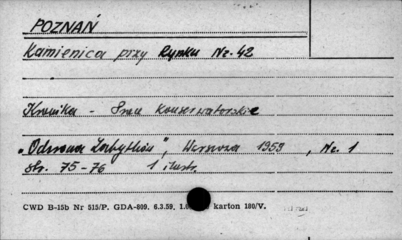 POZNAŃ
Kamienica przy Rynku Nr. 42
Kronika - Prace konserwatorskie
"Ochrona Zabytków", Warszawa 1959, Nr. 1
str. 75-76 1 ilustr.
CWD B-15b Nr 515/P. GDA-809. 6.3.59. karton 180/V.